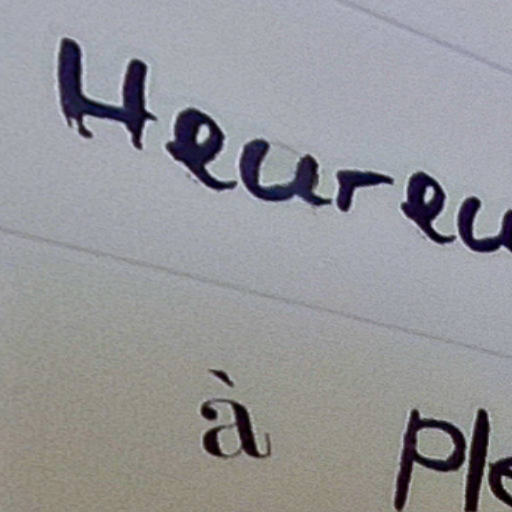 Heureu
à ple